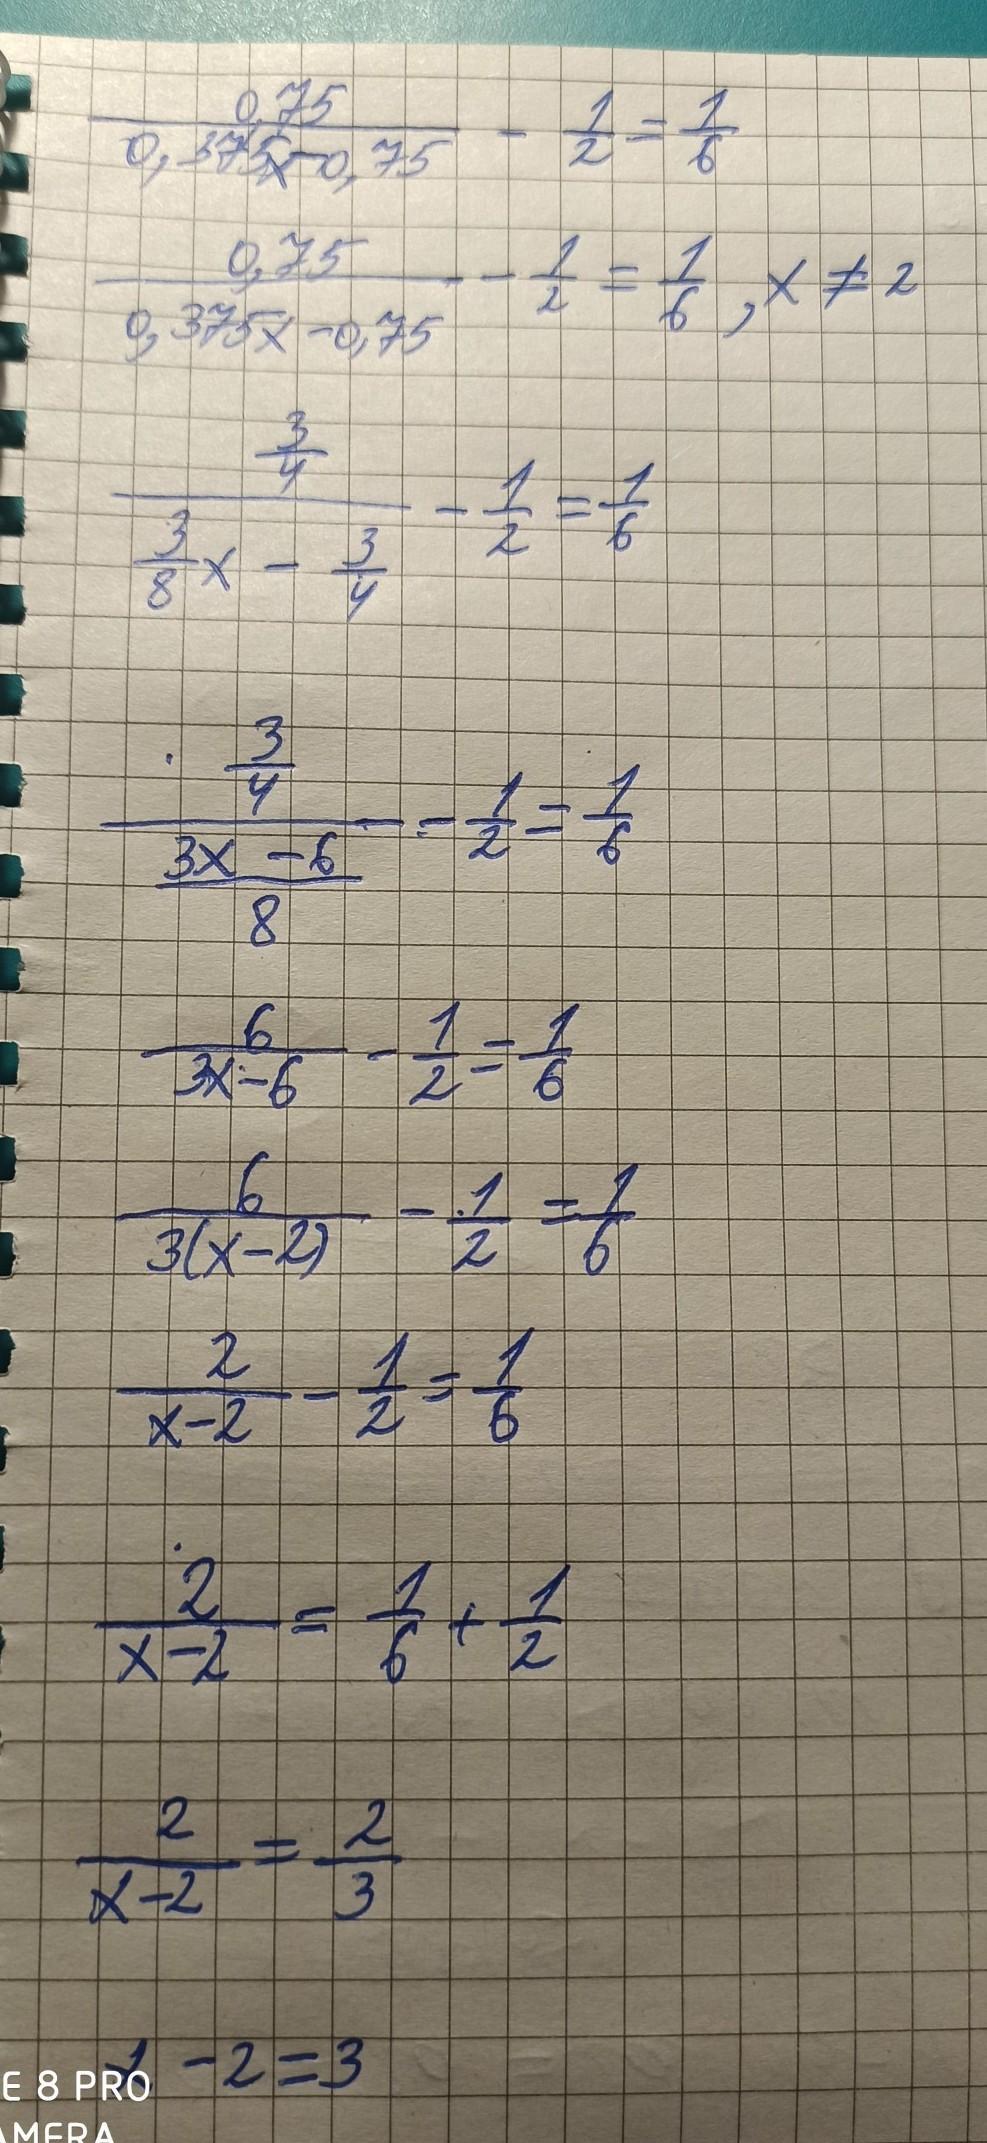 0,75/(0,375x-0,75) - 1/2 = 1/6
0,75/(0,375x-0,75) - 1/2 = 1/6, x ≠ 2
(3/4)/(3/8 x - 3/4) - 1/2 = 1/6
(3/4)/((3x-6)/8) - 1/2 = 1/6
6/(3x-6) - 1/2 = 1/6
6/(3(x-2)) - 1/2 = 1/6
2/(x-2) - 1/2 = 1/6
2/(x-2) = 1/6 + 1/2
2/(x-2) = 2/3
x - 2 = 3
E 8 PRO
AMERA